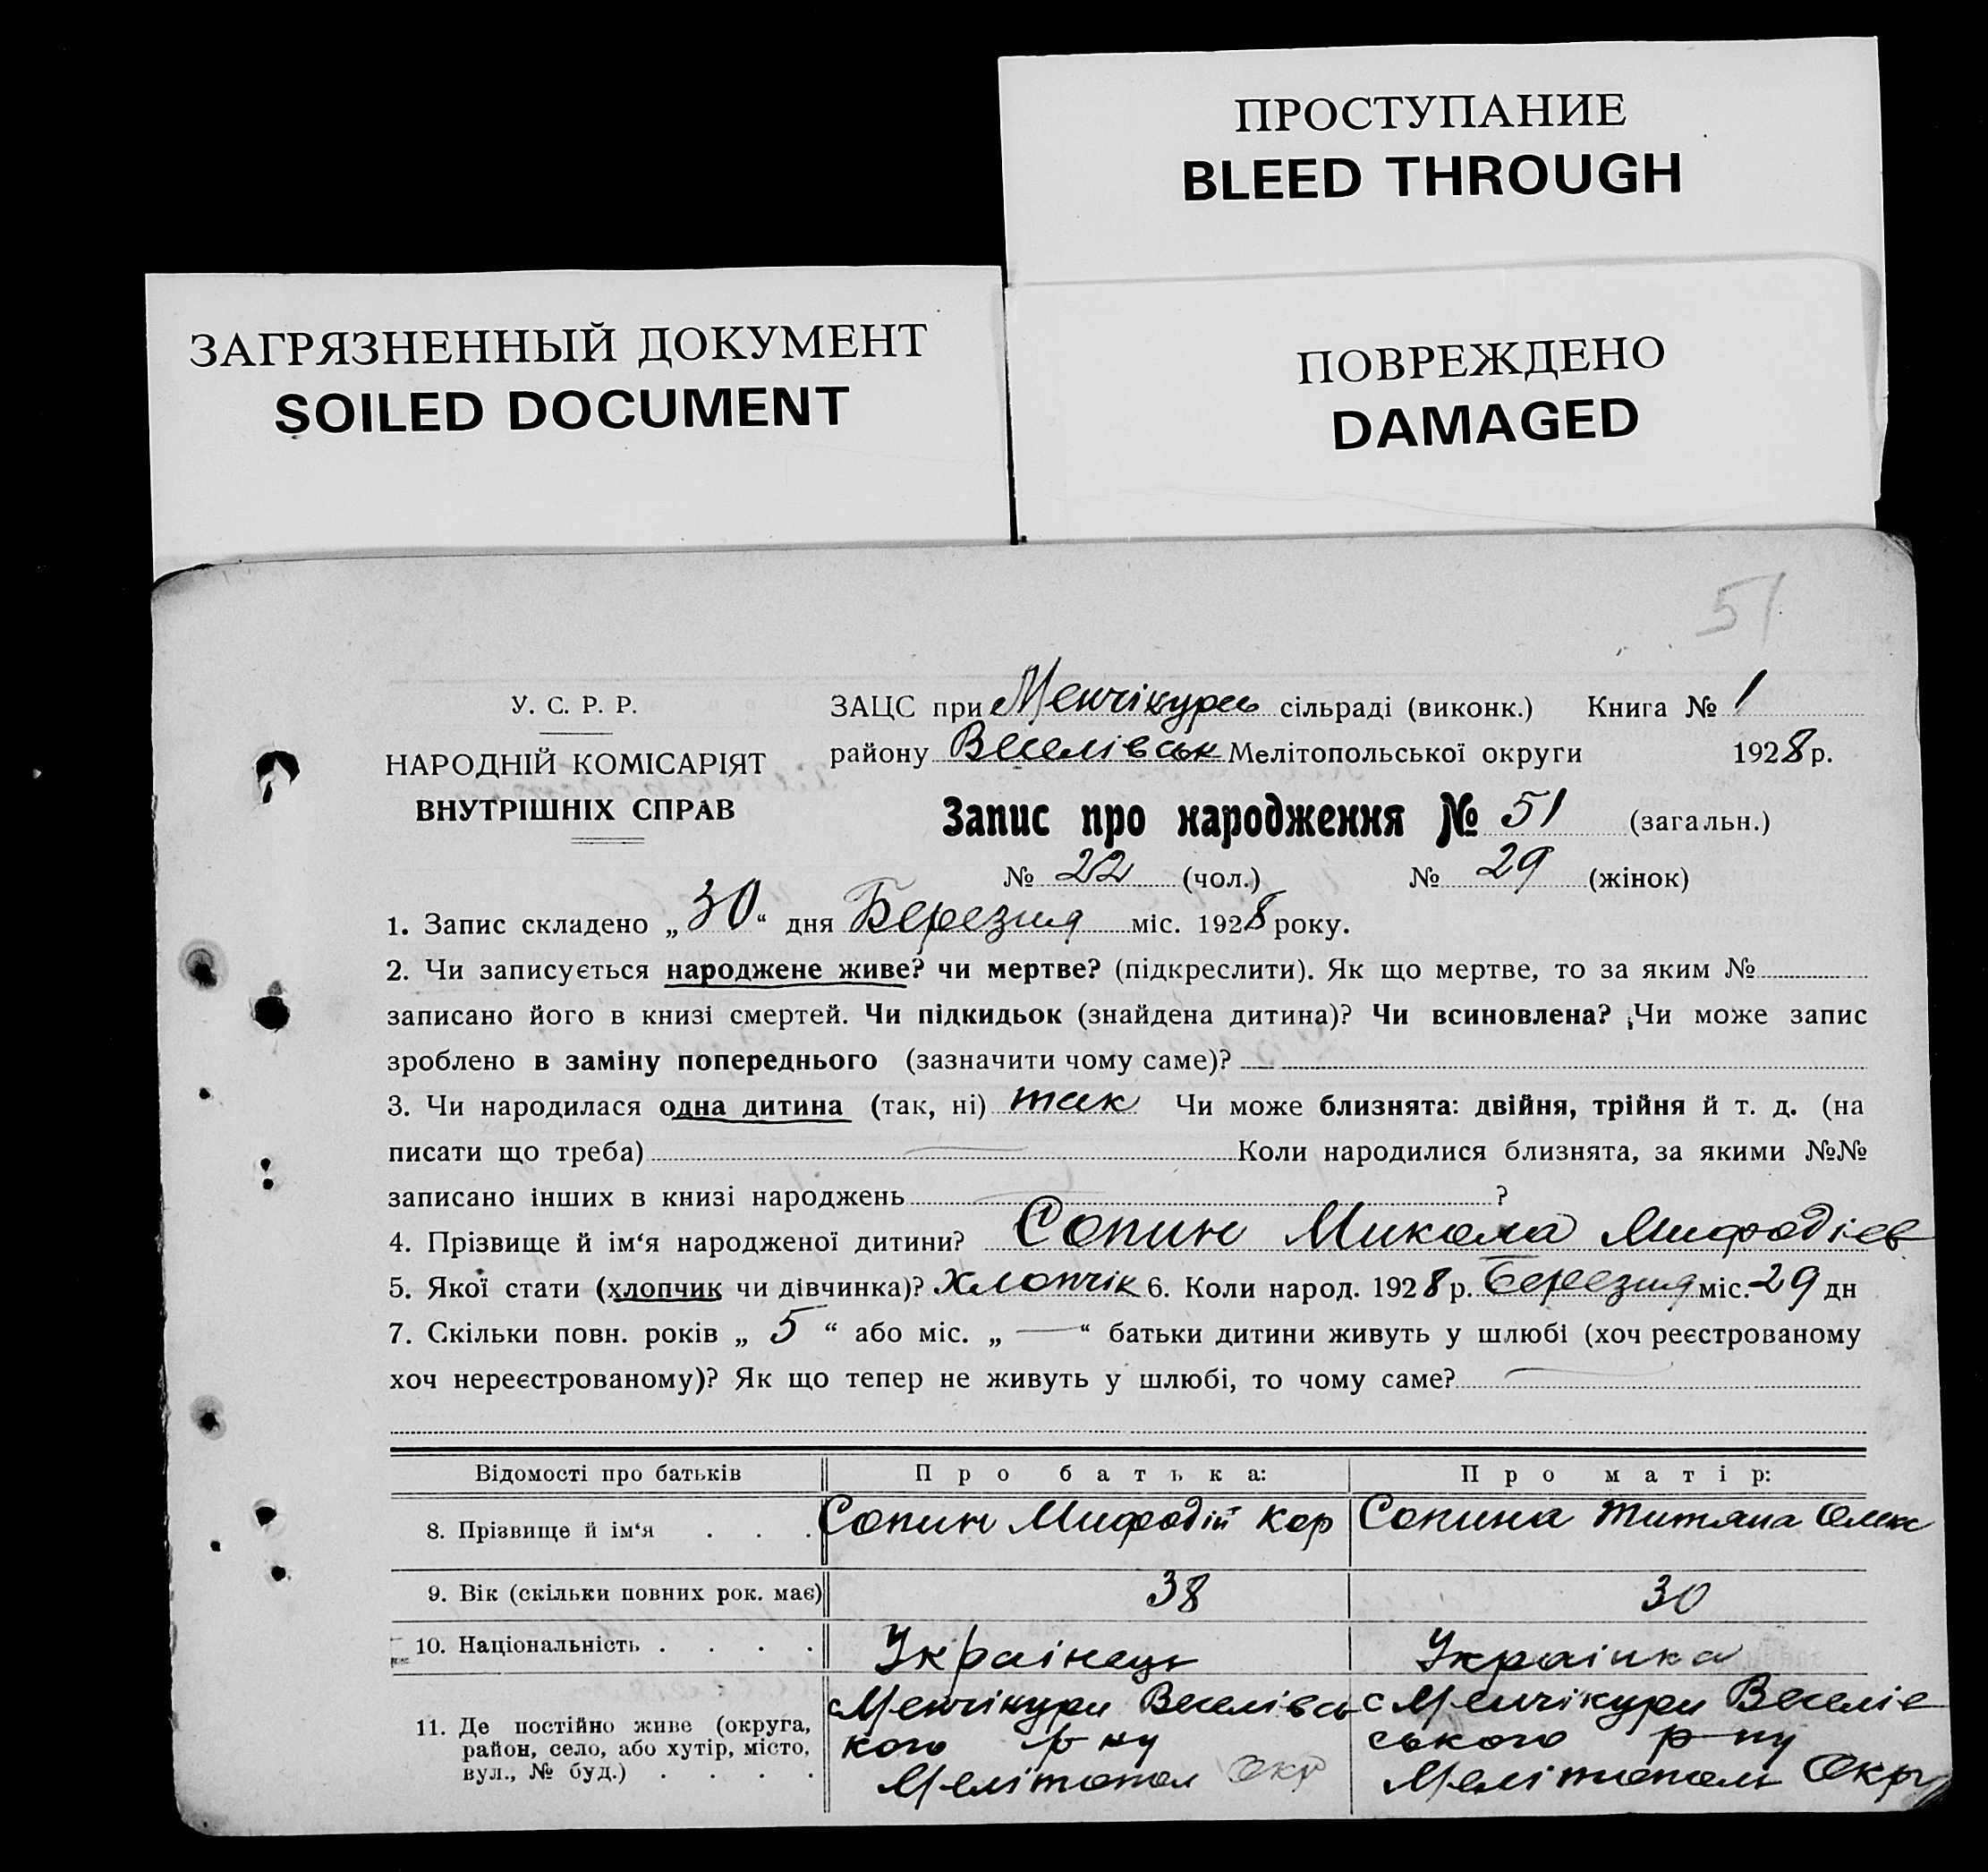 ПРОСТУПАНИЕ
BLEED THROUGH
ЗАГРЯЗНЕННЫЙ ДОКУМЕНТ
SOILED DOCUMENT
ПОВРЕЖДЕНО
DAMAGED
51
У. С. Р. Р.
НАРОДНІЙ КОМІСАРІЯТ
ВНУТРІШНІХ СПРАВ
ЗАЦС при Менчікури сільраді (виконк.) Книга № 1
району Веселівськ Мелітопольської округи 1928 р.
Запис про народження № 51 (загальн.)
№ 22 (чол.) № 29 (жінок)
1. Запис складено „30“ дня Березня міс. 1928 року.
2. Чи записується народжене живе? чи мертве? (підкреслити). Як що мертве, то за яким №
записано його в книзі смертей. Чи підкидьок (знайдена дитина)? Чи всиновлена? Чи може запис
зроблено в заміну попереднього (зазначити чому саме)? —
3. Чи народилася одна дитина (так, ні) так Чи може близнята: двійня, трійня й т. д. (на
писати що треба) — Коли народилися близнята, за якими №№
записано інших в книзі народжень — ?
4. Прізвище й ім‘я народженої дитини? Сопин Микола Мифодієв
5. Якої стати (хлопчик чи дівчинка)? Хлопчік 6. Коли народ. 1928 р. Березня міс. 29 дн
7. Скільки повн. років „ 5 “ або міс. „ — “ батьки дитини живуть у шлюбі (хоч реєстрованому
хоч нереєстрованому)? Як що тепер не живуть у шлюбі, то чому саме? —
Відомості про батьків Про батька: Про матір:
8. Прізвище й ім‘я . . . Сопин Мифодій Кор Сопина Титяна Олекс
9. Вік (скільки повних рок. має) 38 30
10. Національність . . . . Украінець Украінка
11. Де постійно живе (округа, район, село, або хутір, місто, вул., № буд.) . . . .
с Менчікури Веселівсь
кого р-ну
Мелітопол Окр
с Менчікури Веселів
ського р-ну
Мелітополь Окр